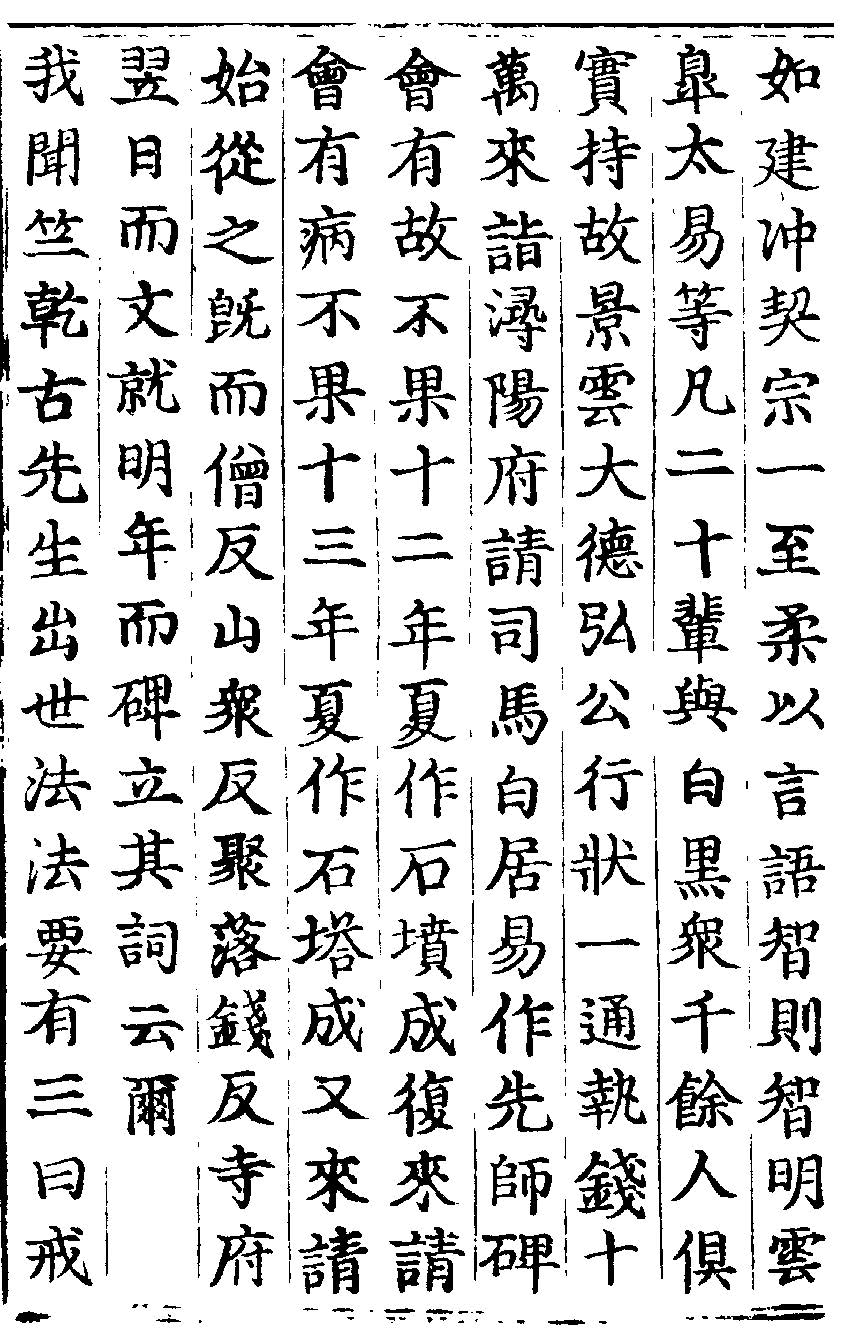 如建冲契宗一至柔以言語智則智明雲
臯太易等凡二十輩與白黒衆千餘人俱
實持故景雲大德弘公行狀一通執錢十
萬來詣潯陽府請司馬白居易作先師碑
會有故不果十二年夏作石墳成復來請
會有病不果十三年夏作石塔成又來請
始從之旣而僧反山衆反聚落錢反寺府
翌日而文就明年而碑立其詞云爾
我聞竺乾古先生出世法法要有三曰戒